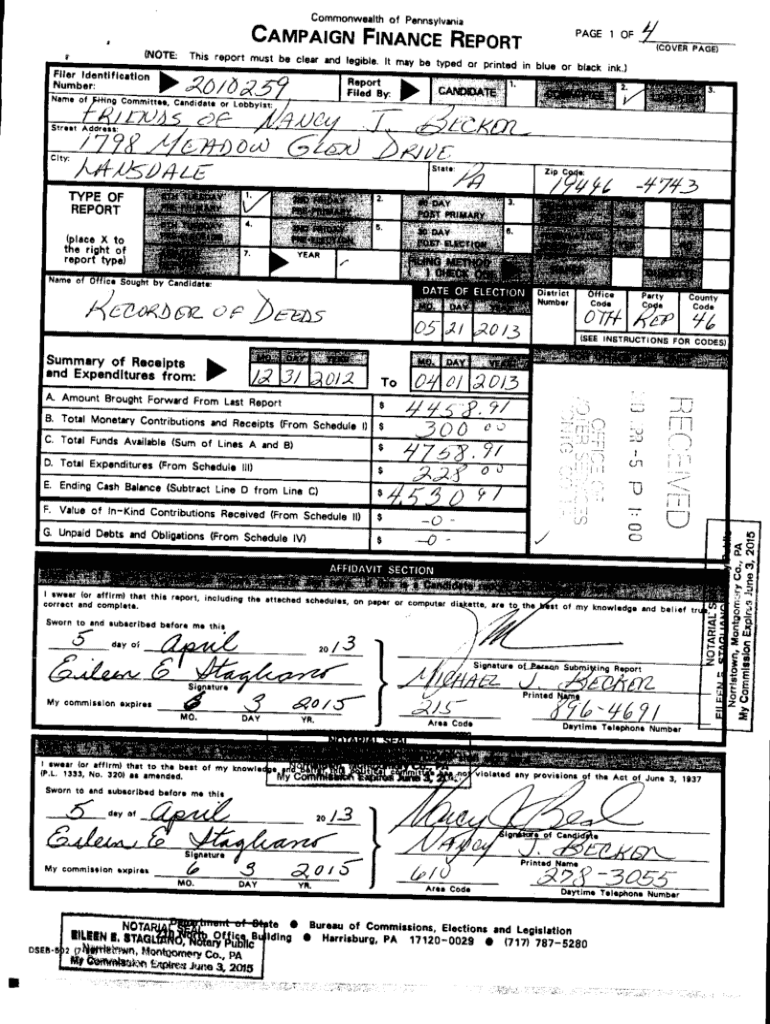 Commonwealth of Pennsylvania
CAMPAIGN FINANCE REPORT
PAGE 1 OF 4
(COVER PAGE)
(NOTE: This report must be clear and legible. It may be typed or printed in blue or black ink.)
Filer Identification Number: 2010259
Report Filed By: CANDIDATE 1. COMMITTEE 2. ✓ LOBBYIST 3.
Name of Filing Committee, Candidate or Lobbyist:
FRIENDS OF NANCY J. BECKER
Street Address:
1798 MEADOW GLEN DRIVE
City: LANSDALE State: PA Zip Code: 19446 -4743
TYPE OF REPORT
(place X to the right of report type)
6TH TUESDAY PRE-PRIMARY 1. ✓ 2ND FRIDAY PRE-PRIMARY 2. 30 DAY POST PRIMARY 3.
6TH TUESDAY PRE-ELECTION 4. 2ND FRIDAY PRE-ELECTION 5. 30 DAY POST ELECTION 6.
7. YEAR FILING METHOD ( ) CHECK ONE PAPER DISKETTE
Name of Office Sought by Candidate:
RECORDER OF DEEDS
DATE OF ELECTION
MO. DAY YEAR
05 21 2013
District Number
Office Code OTH
Party Code REP
County Code 46
(SEE INSTRUCTIONS FOR CODES)
Summary of Receipts and Expenditures from:
MO. DAY YEAR
12 31 2012
To
MO. DAY YEAR
04 01 2013
A. Amount Brought Forward From Last Report $ 4458.91
B. Total Monetary Contributions and Receipts (From Schedule I) $ 300 00
C. Total Funds Available (Sum of Lines A and B) $ 4758.91
D. Total Expenditures (From Schedule III) $ 228 00
E. Ending Cash Balance (Subtract Line D from Line C) $ 4530 91
F. Value of In-Kind Contributions Received (From Schedule II) $ -0-
G. Unpaid Debts and Obligations (From Schedule IV) $ -0-
RECEIVED
-5 P 1:00
OFFICE OF
AFFIDAVIT SECTION
I swear (or affirm) that this report, including the attached schedules, on paper or computer diskette, are to the best of my knowledge and belief true, correct and complete.
Sworn to and subscribed before me this
5 day of April 2013
Eileen E Stagliano
Signature
My commission expires 6 3 2015
MO. DAY YR.
Signature of Person Submitting Report
MICHAEL J. BECKER
Printed Name
215 896-4691
Area Code Daytime Telephone Number
NOTARIAL S
EILEEN E. STAGLIANO
Norristown, Montgomery Co., PA
My Commission Expires June 3, 2015
NOTARIAL SEAL
My Commission Expires June 3, 2015
I swear (or affirm) that to the best of my knowledge and belief this political committee has not violated any provisions of the Act of June 3, 1937
(P.L. 1333, No. 320) as amended.
Sworn to and subscribed before me this
5 day of April 2013
Eileen E Stagliano
Signature
My commission expires 6 3 2015
MO. DAY YR.
Nancy J Becker
Signature of Candidate
NANCY J. BECKER
Printed Name
610 278-3055
Area Code Daytime Telephone Number
Department of State ● Bureau of Commissions, Elections and Legislation
210 North Office Building ● Harrisburg, PA 17120-0029 ● (717) 787-5280
DSEB-502
NOTARIAL SEAL
EILEEN E. STAGLIANO, Notary Public
Norristown, Montgomery Co., PA
My Commission Expires June 3, 2015